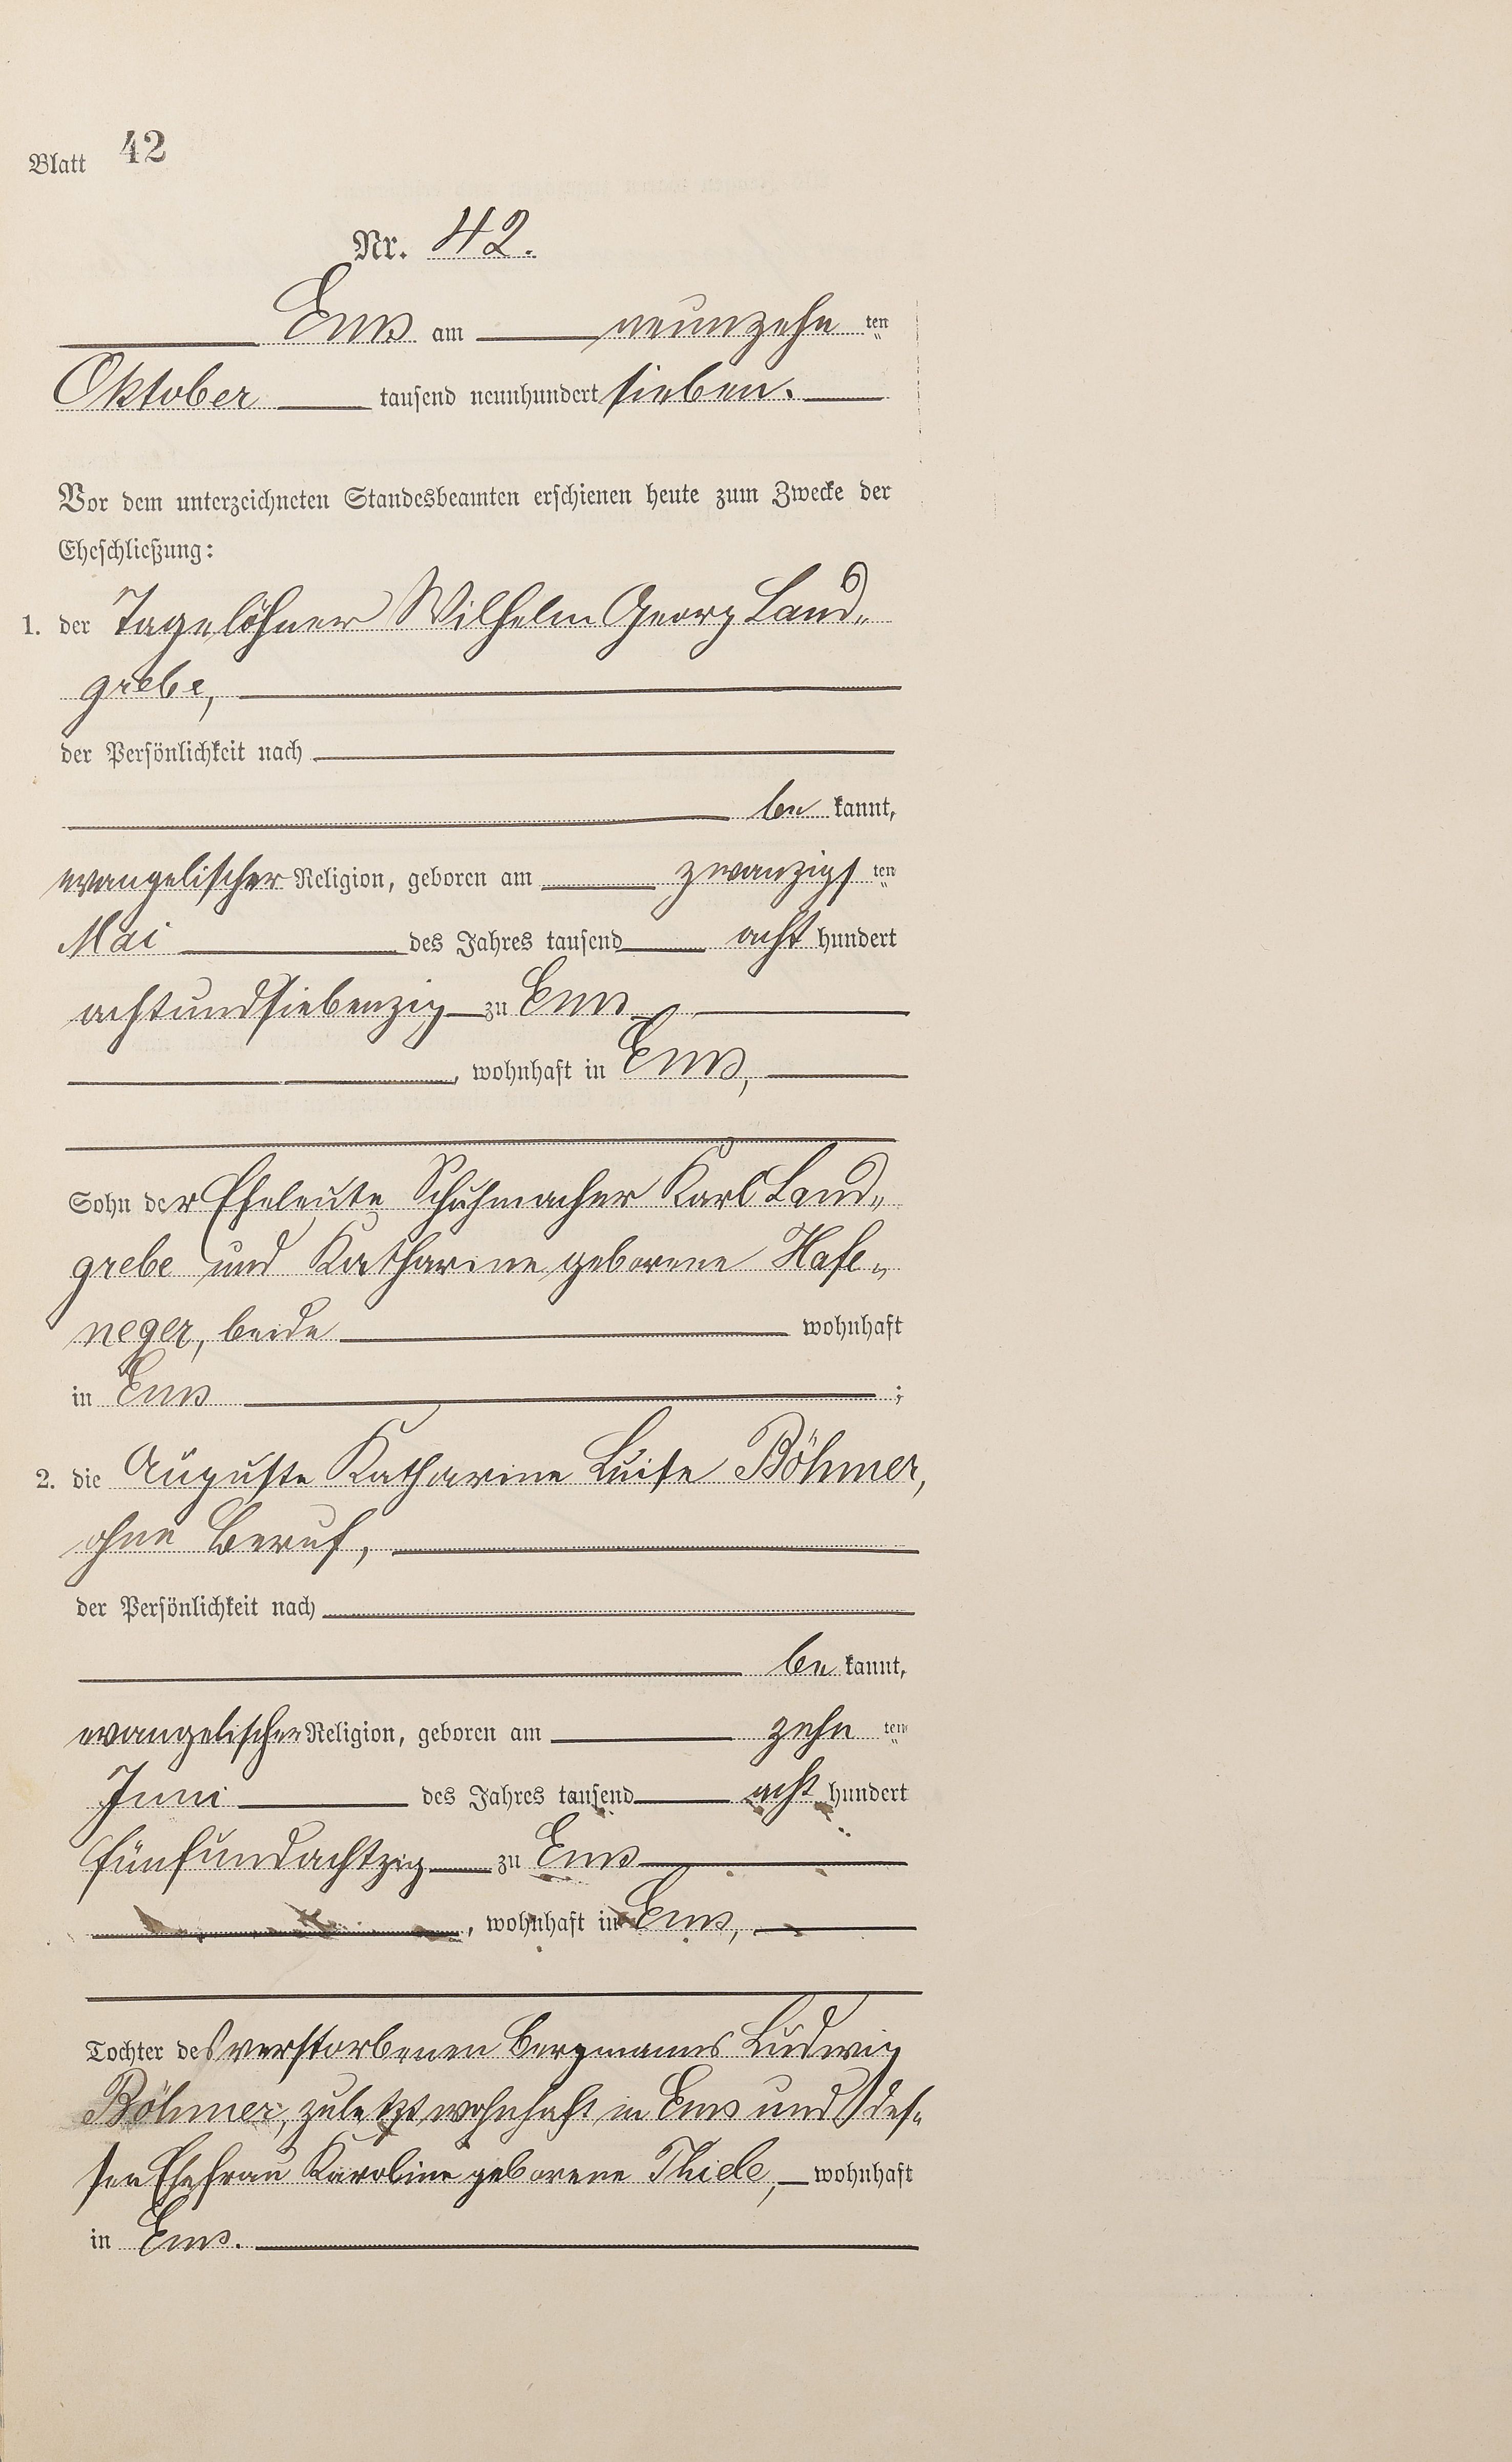 Blatt 42
Nr. 42.
Ems am neunzehnten
Oktober tausend neunhundert sieben.
Vor dem unterzeichneten Standesbeamten erschienen heute zum Zwecke der
Eheschließung:
1. der Tagelöhner Wilhelm Georg Land-
grebe,
der Persönlichkeit nach
bekannt,
evangelischer Religion, geboren am zwanzigsten
Mai des Jahres tausend acht hundert
achtundsiebenzig zu Ems
, wohnhaft in Ems,
Sohn der Eheleute Schuhmacher Karl Land-
grebe und Katharine geborene Hafe-
neger, beide wohnhaft
in Ems ;
2. die Auguste Katharine Luise Böhmer,
ohne Beruf,
der Persönlichkeit nach
bekannt,
evangelischer Religion, geboren am zehnten
Juni des Jahres tausend acht hundert
fünfundachtzig zu Ems
, wohnhaft in Ems,
Tochter des verstorbenen Bergmanns Ludwig
Böhmer, zuletzt wohnhaft in Ems und des-
sen Ehefrau Karoline geborene Thiele, wohnhaft
in Ems.